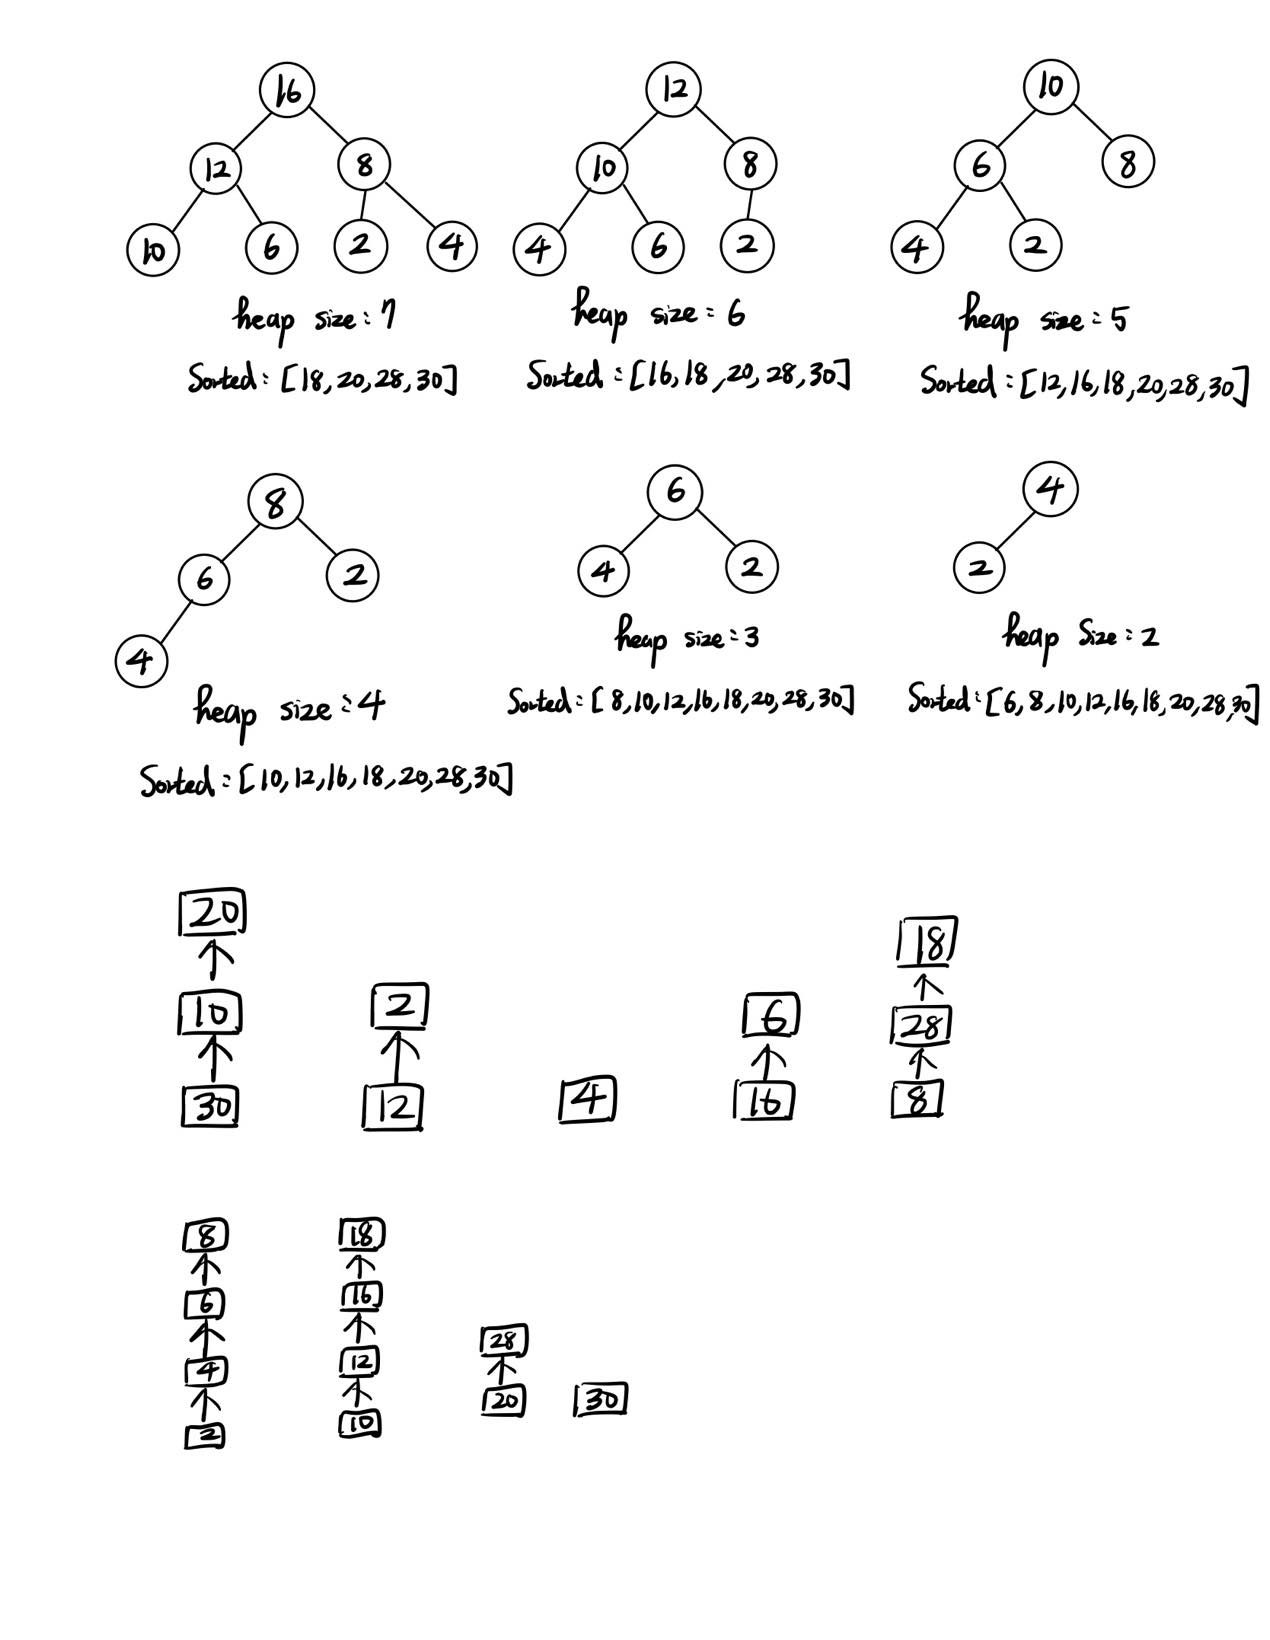 16
12
8
10
6
2
4
heap size: 7
Sorted: [18, 20, 28, 30]
12
10
8
4
6
2
heap size: 6
Sorted: [16, 18, 20, 28, 30]
10
6
8
4
2
heap size: 5
Sorted: [12, 16, 18, 20, 28, 30]
8
6
2
4
heap size: 4
Sorted: [10, 12, 16, 18, 20, 28, 30]
6
4
2
heap size: 3
Sorted: [8, 10, 12, 16, 18, 20, 28, 30]
4
2
heap Size: 2
Sorted: [6, 8, 10, 12, 16, 18, 20, 28, 30]
20
10
30
2
12
4
6
16
18
28
8
8
6
4
2
18
16
12
10
28
20
30